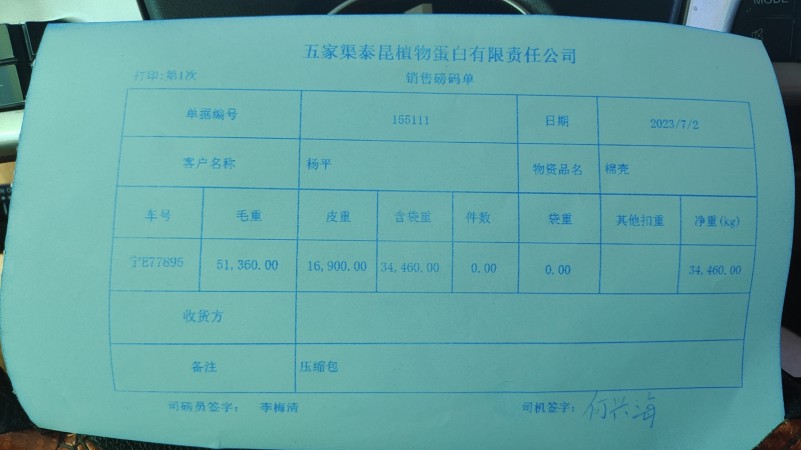 五家渠泰昆植物蛋白有限责任公司
打印:第1次 销售磅码单
单据编号 155111 日期 2023/7/2
客户名称 杨平 物资品名 棉壳
车号 毛重 皮重 含袋重 件数 袋重 其他扣重 净重(kg)
宁E77895 51,360.00 16,900.00 34,460.00 0.00 0.00 34,460.00
收货方
备注 压缩包
司磅员签字: 李梅清 司机签字: 何兴海